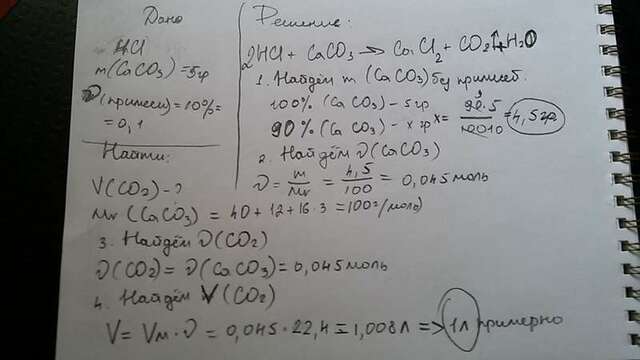 Дано
HCl
m(CaCO3) = 5гр
ν(примеси) = 10% =
= 0,1
Найти:
V(CO2) - ?
Решение:
2HCl + CaCO3 → CaCl2 + CO2↑ + H2O
1. Найдём m (CaCO3) без примесей.
100% (CaCO3) - 5гр
90% (CaCO3) - x гр x = 90·5/100 = 4,5гр
2. Найдём ν(CaCO3)
ν = m/Mr = 4,5/100 = 0,045 моль
Mr (CaCO3) = 40 + 12 + 16·3 = 100г/моль)
3. Найдём ν(CO2)
ν(CO2) = ν(CaCO3) = 0,045 моль
4. Найдём V(CO2)
V = Vm · ν = 0,045 · 22,4 = 1,008 л => 1л примерно